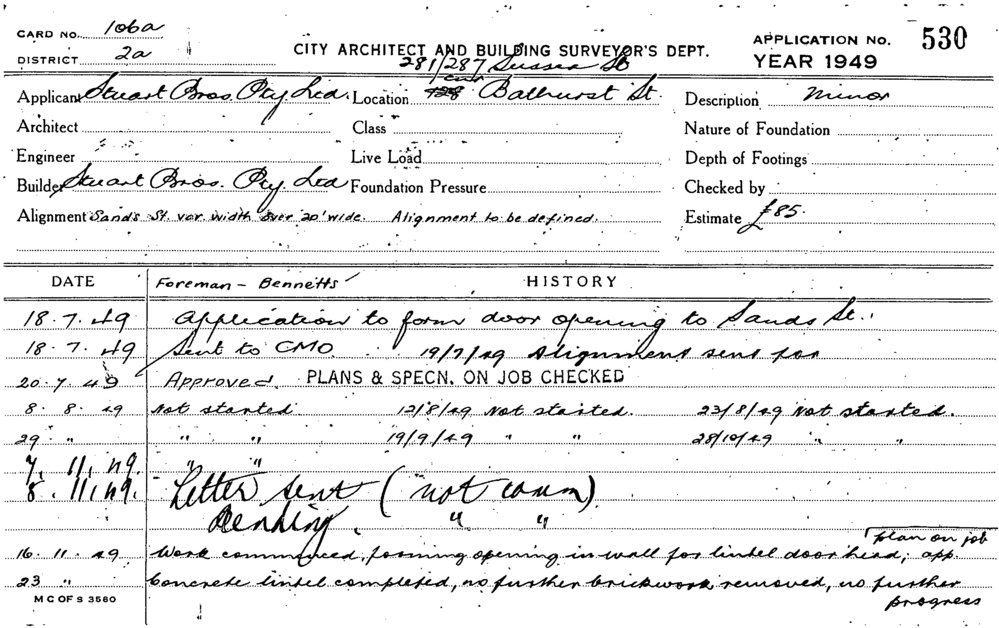 CARD NO. 106a
DISTRICT 2a
CITY ARCHITECT AND BUILDING SURVEYOR'S DEPT.
APPLICATION No. 530
YEAR 1949
281/287 Sussex St
Applicant Stuart Bros. Pty. Ltd. Location cnr Bathurst St. Description Minor
Architect Class Nature of Foundation
Engineer Live Load Depth of Footings
Builder Stuart Bros. Pty. Ltd Foundation Pressure Checked by
Alignment Sands St. var. width over 20' wide. Alignment to be defined. Estimate £85.
DATE Foreman - Bennetts HISTORY
18.7.49 Application to form door opening to Sands St.
18.7.49 Sent to CMO. 19/7/49 Alignment sent for
20.7.49 Approved. PLANS & SPECN. ON JOB CHECKED
8.8.49 Not started 12/8/49 Not started. 23/8/49 Not started.
29 " " " 19/9/49 " " 28/10/49 " "
7.11.49. " "
8.11.49. Letter sent (not comm)
Pending. " "
plan on job
16.11.49 Work commenced, forming opening in wall for lintel door head, app.
23 " Concrete lintel completed, no further brickwork removed, no further
progress
M C OF S 3560